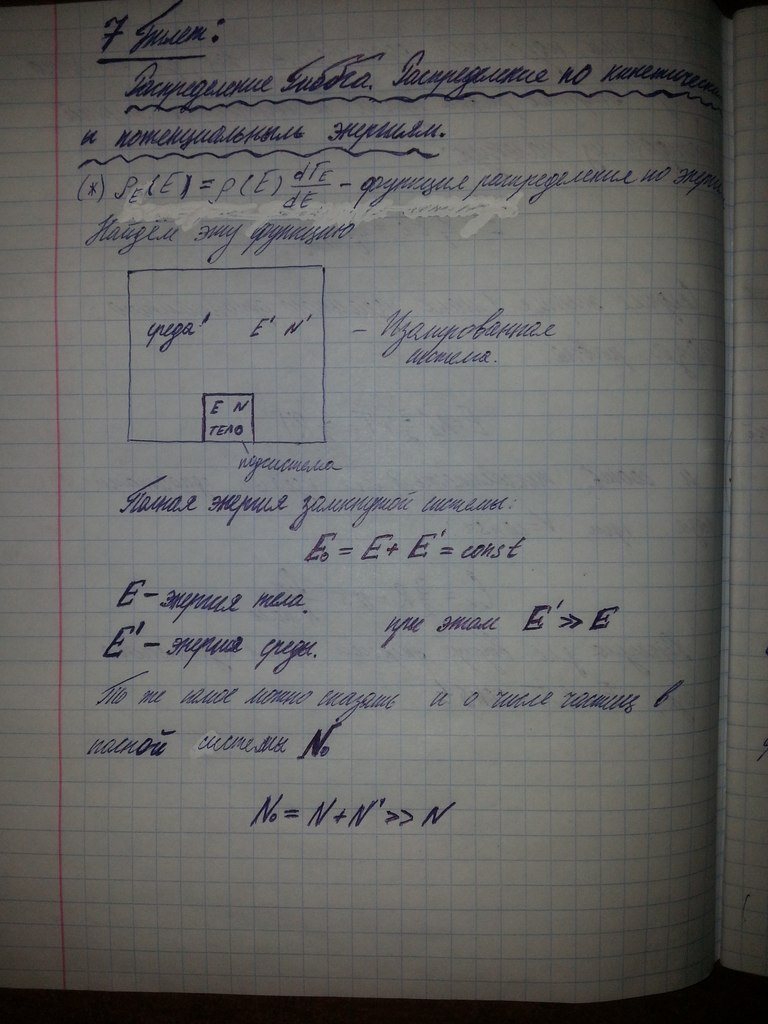 7 Билет:
Распределение Гиббса. Распределение по кинетическим
и потенциальныль энергиям.
(*) ρ_E(E) = ρ(E) dΓ_E/dE - функция распределения по энерги
Найдём эту функцию
среда' E' N' - Изалированная
система.
E N
ТЕЛО
подсистема
Полная энергия замкнутой системы:
E₀ = E + E' = const
E - энергия тела.
при этом E' >> E
E' - энергия среды.
То же самое можно сказать и о числе частиц в
полной системы N₀
N₀ = N + N' >> N